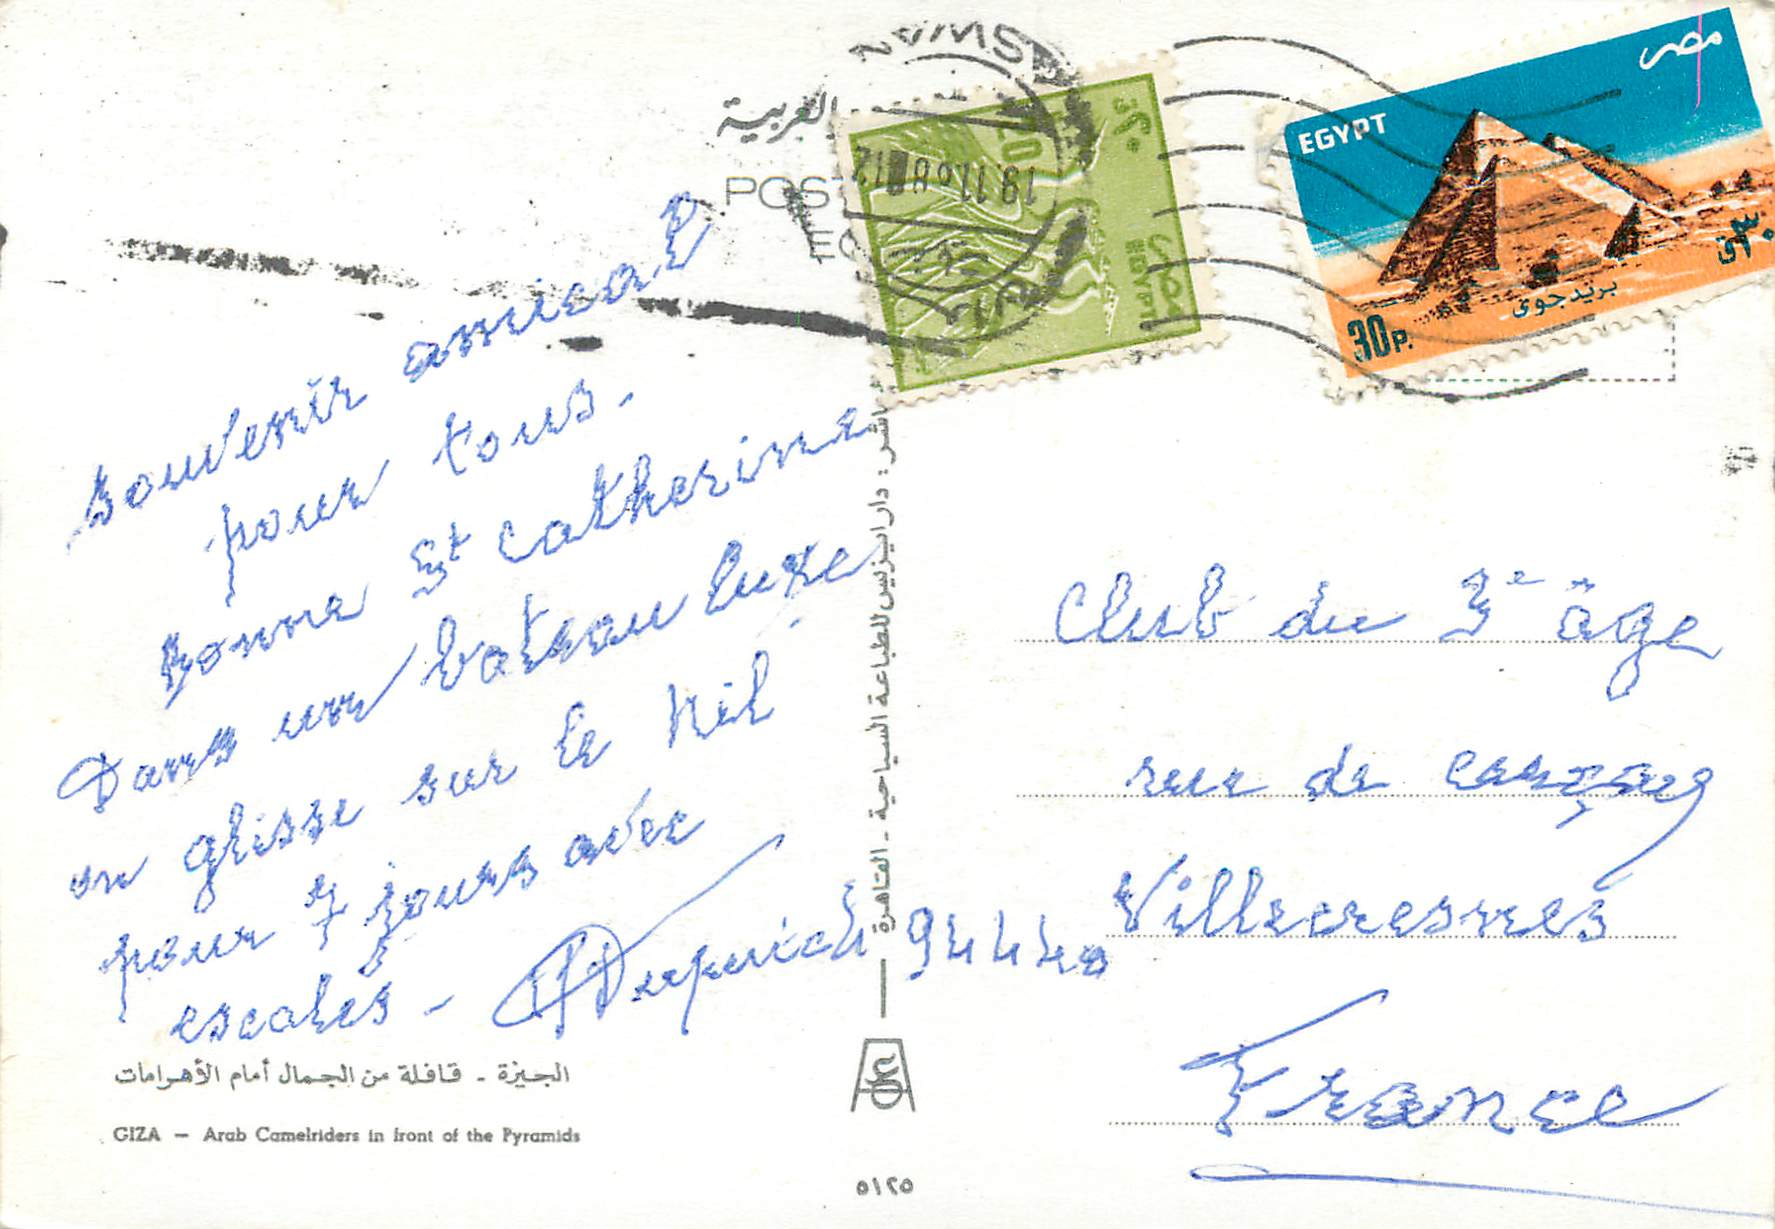 العربية
POS
ASWAN
19.11.8  12
مصر
EGYPT
مصر
EGYPT
٣٠ق
بريد جوى
30P.
Souvenir amical
pour tous.
Bonne St Catherine
Dans un bateau luxe
on glisse sur le Nil
pour 7 jours avec
escales -
Club du 3e âge
rue de
94440 Villecresnes
France
ناشر : دار ايزيس للطباعة السياحية - القاهرة
الجيزة - قافلة من الجمال أمام الأهرامات
GIZA — Arab Camelriders in front of the Pyramids
٥١٢٥